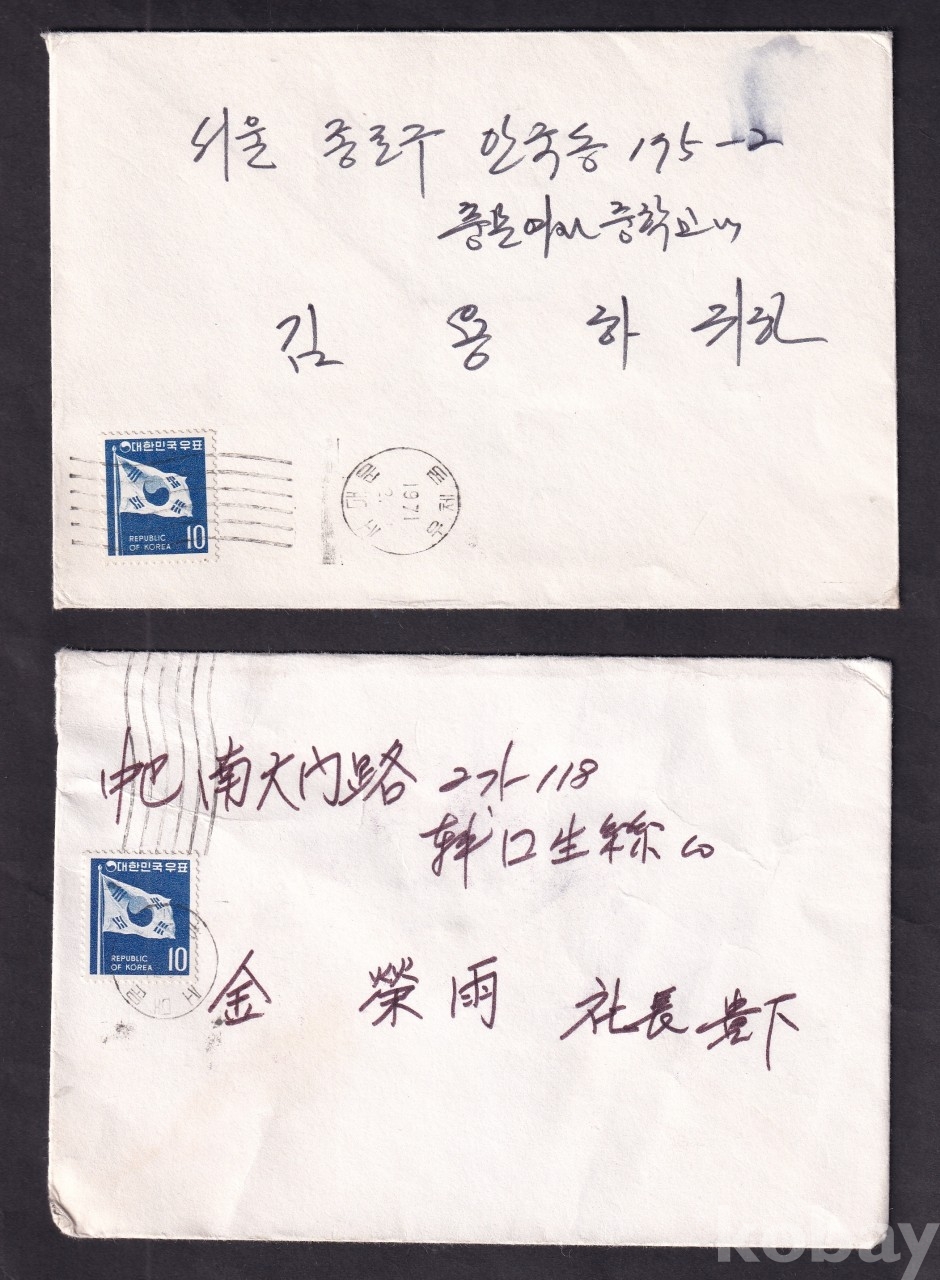 서울 종로구 안국동 175-2
풍문여자중학교내
김 용 하 귀하
대한민국우표
REPUBLIC
OF KOREA
10
서대문
1971
우체국
南大門路 2가 118
韓口生絲
대한민국우표
REPUBLIC
OF KOREA
10
서대문
金 榮雨 社長 貴下
kobay